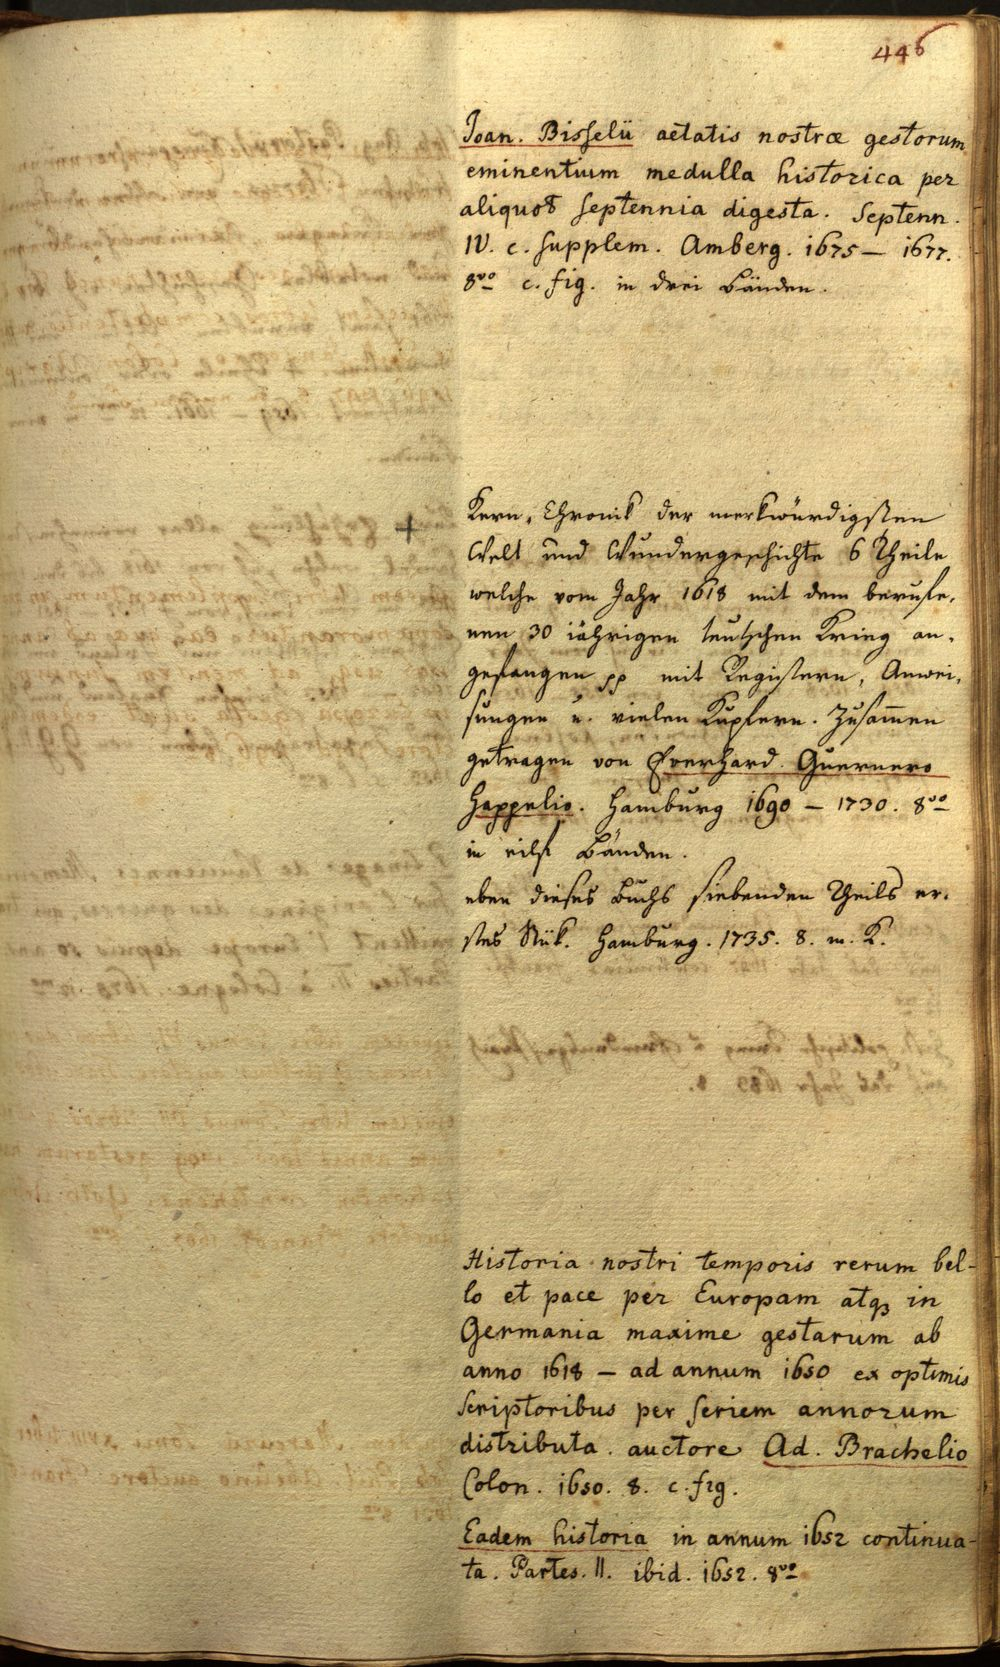 446
Joan. Bisselii aetatis nostræ gestorum
eminentium medulla historica per
aliquot septennia digesta. Septenn.
IV. c. supplem. Amberg. 1675 — 1677.
8vo c. fig. in drei Bänden.
+
Kern-Chronik der merkwürdigsten
Welt und Wundergeschichte 6 Theile
welche vom Jahr 1618 mit dem berufe-
nen 30 iährigen teutschen Krieg an-
gefangen pp mit Registern, Anwei-
sungen u. vielen Kupfern. Zusam̄en
getragen von Everhard Guernero
Happelio. Hamburg 1690 — 1730. 8vo
in eilf Bänden.
eben dieses Buchs siebenden Theils er-
stes Stük. Hamburg. 1735. 8. m. K.
Historia nostri temporis rerum bel-
lo et pace per Europam atqꝫ in
Germania maxime gestarum ab
anno 1618 — ad annum 1650 ex optimis
scriptoribus per seriem annorum
distributa. auctore Ad. Brachelio
Colon. 1650. 8. c. fig.
Eadem historia in annum 1652 continua-
ta. Partes. II. ibid. 1652. 8vo